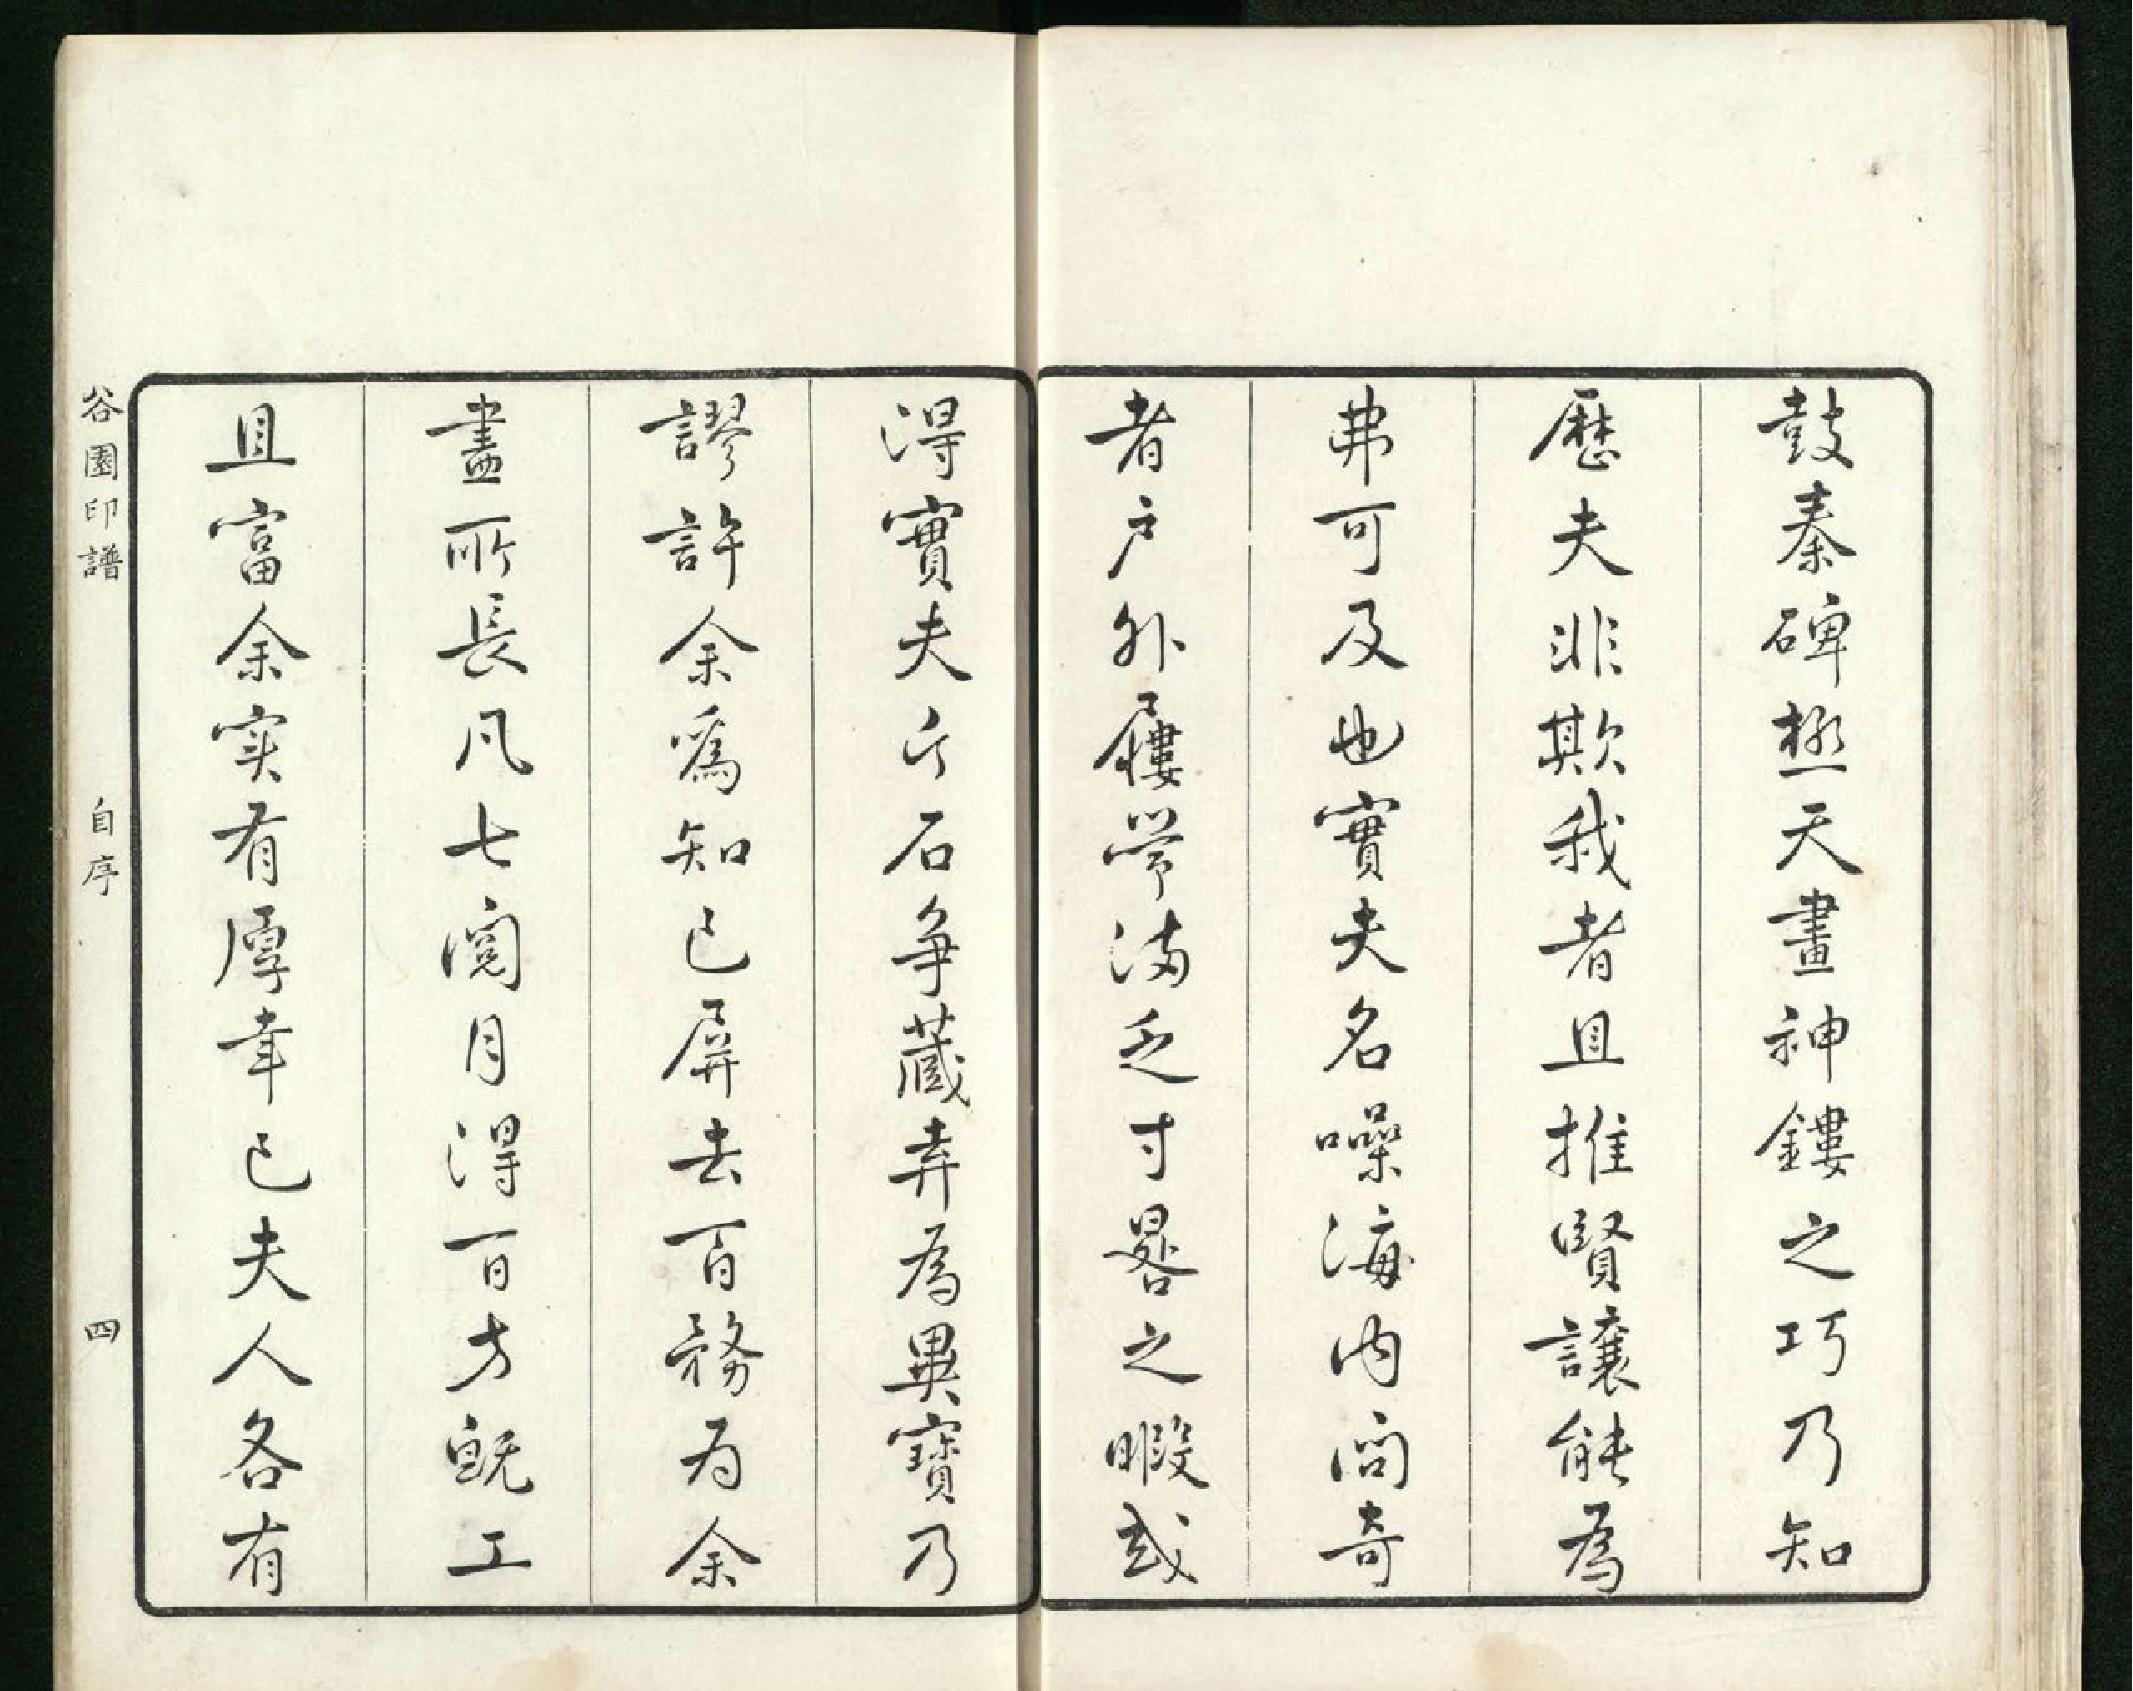 鼓秦碑極天畫神鏤之巧乃知
歷夫非欺我者且推賢讓能為
弗可及也實夫名噪海内問奇
者户外屨常滿乏寸晷之暇或
得實夫片石争藏弆為異寶乃
謬許余爲知己屏去百務为余
畫所長凡七閱月得百方既工
且富余实有厚幸已夫人各有
谷園印譜 自序 四